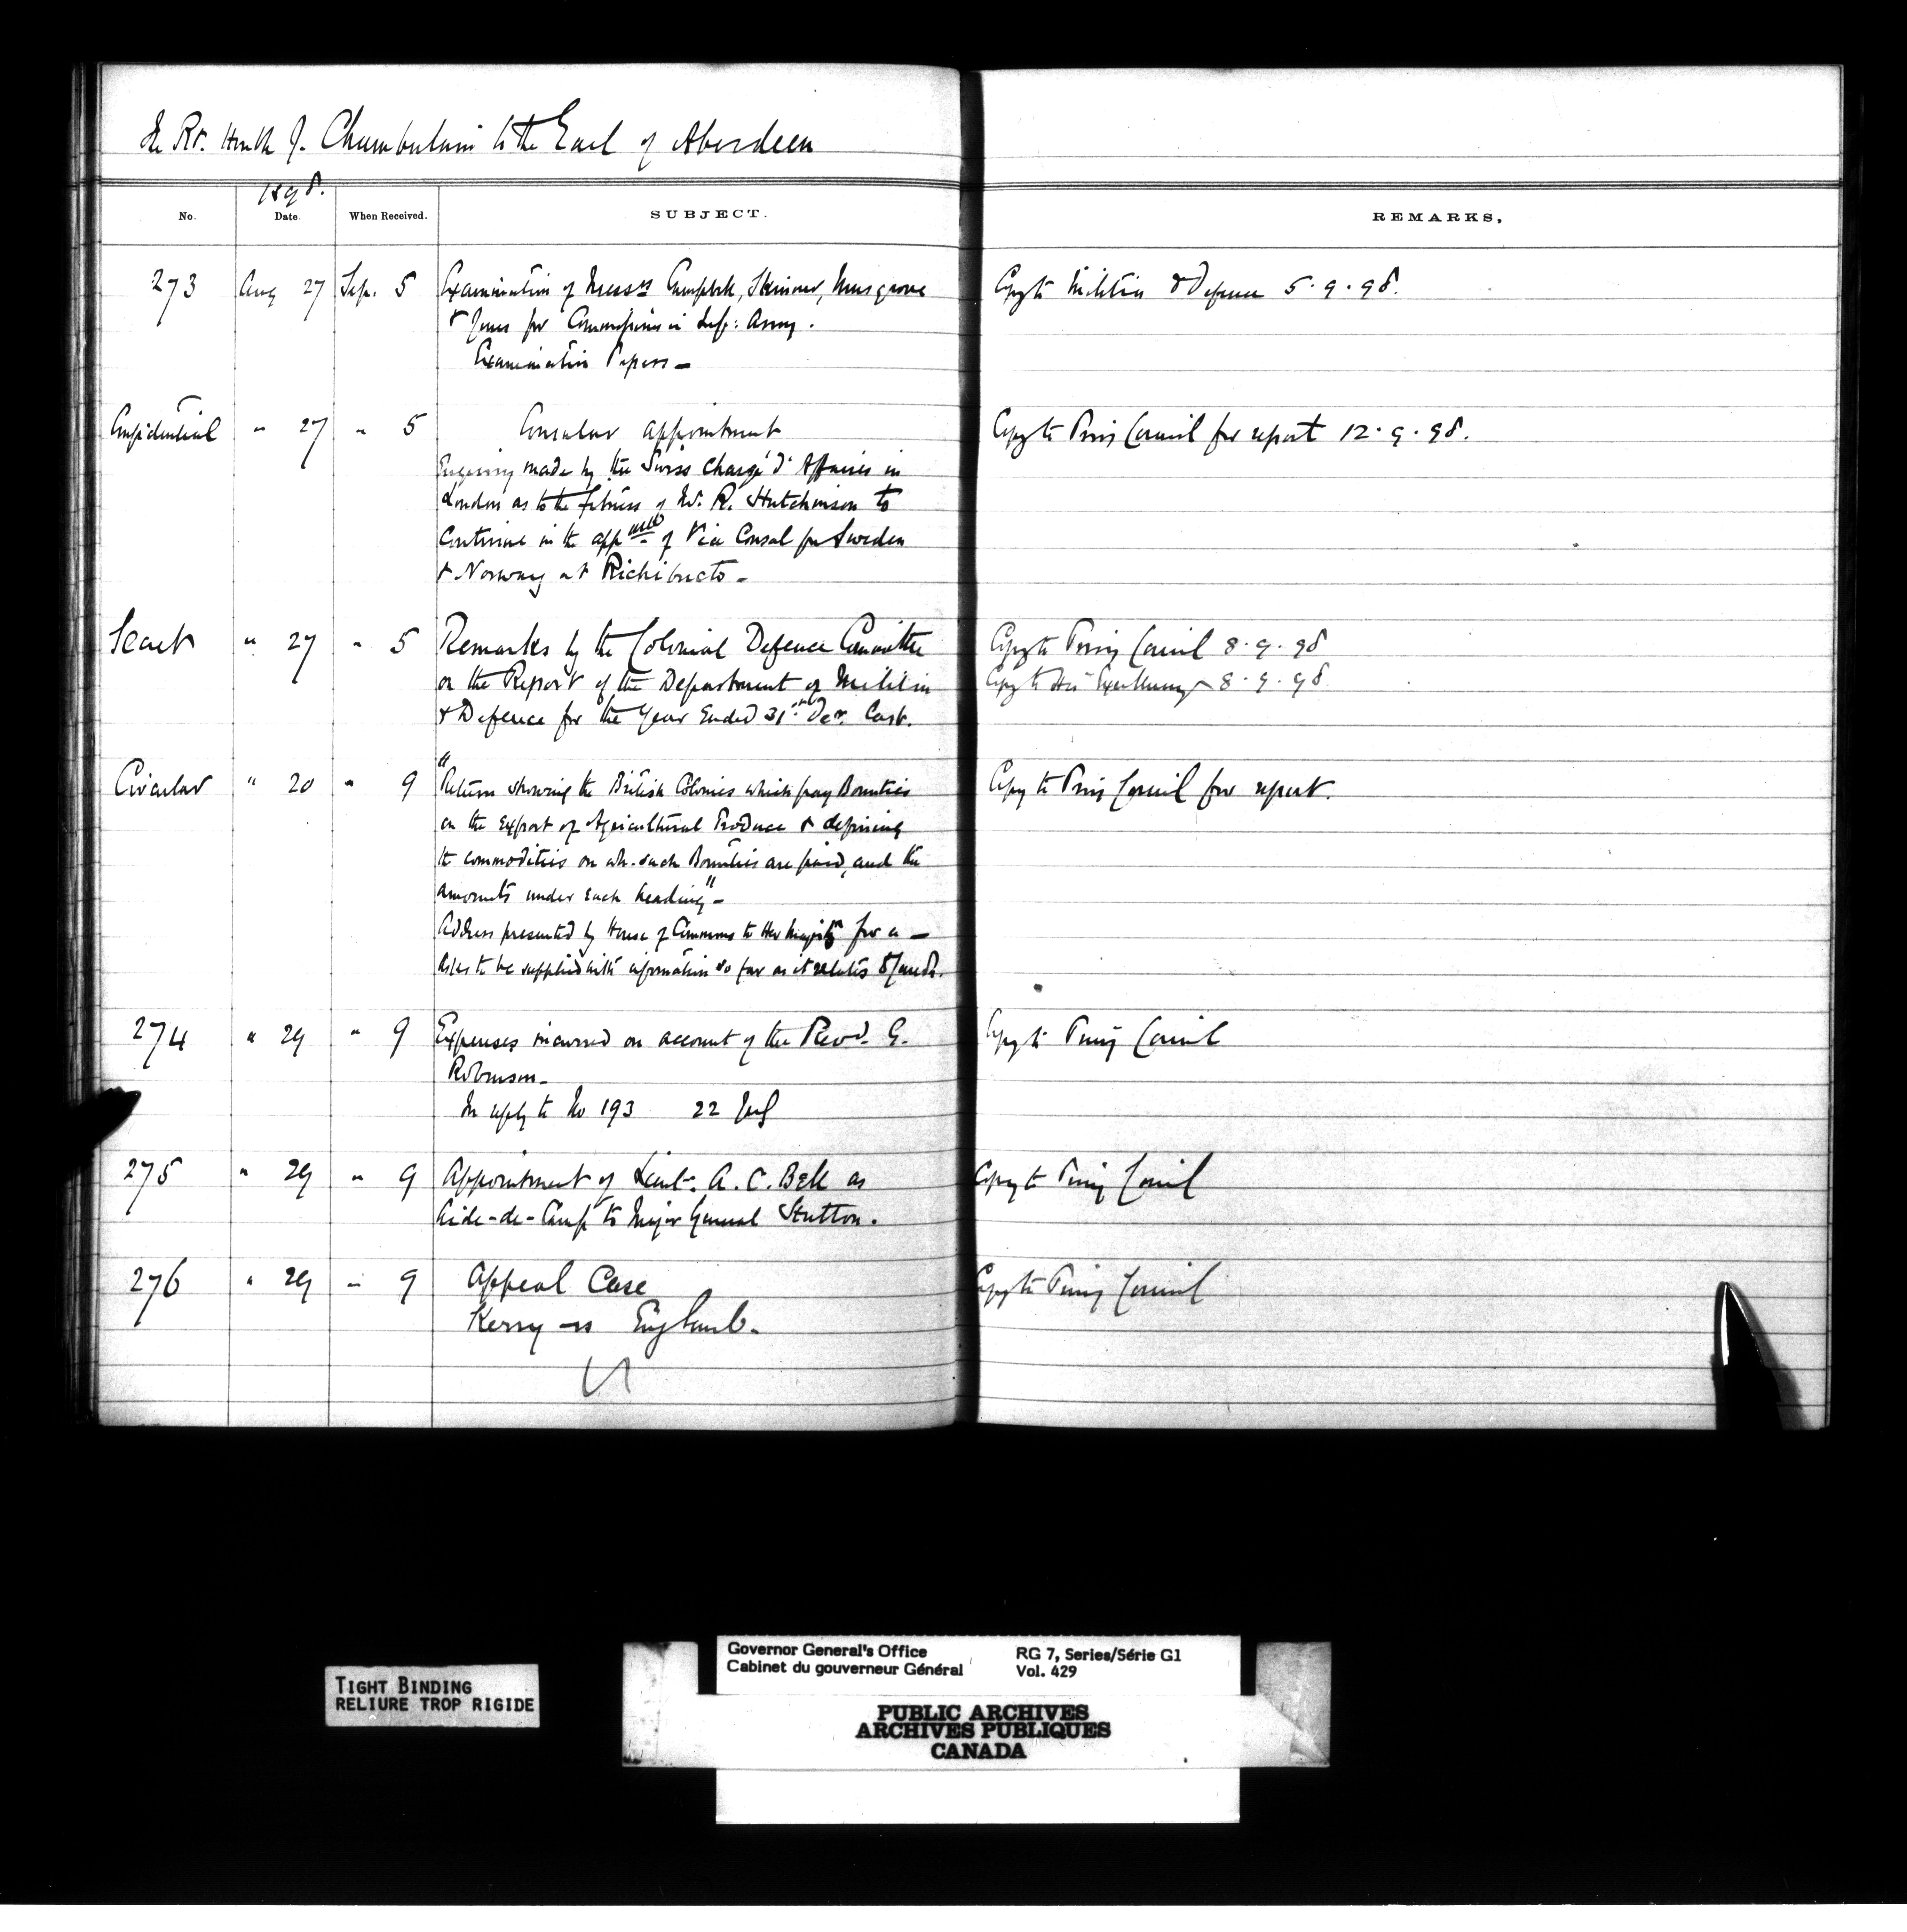 The Rt. Honble J. Chamberlain to the Earl of Aberdeen
1898.
No. Date. When Received. SUBJECT. REMARKS.
273 Aug 27 Sep. 5 Examination of Messrs Campbell, Skinner, Musgrove Copy to Militia & Defence 5.9.98.
& Jones for Commissions in Army.
Examination Papers -
Confidential " 27 " 5 Consular appointment Copy to Privy Council for report 12.9.98.
Enquiry made by the Swiss Chargé d'Affaires in
London as to the fitness of Mr. R. Hutchinson to
Continue in the appmt of Vice Consul for Sweden
& Norway at Richibucto -
Secret " 27 " 5 Remarks by the Colonial Defence Committee Copy to Privy Council 8.9.98
on the Report of the Department of Militia Copy to His Excellency 8.9.98
& Defence for the Year Ended 31st Decr. last.
Circular " 20 " 9 "Return showing the British Colonies which pay Bounties Copy to Privy Council for report.
on the Export of Agricultural Produce & defining
the commodities on wh. such Bounties are paid, and the
amounts under each heading" -
Address presented by House of Commons to Her Majesty for a -
Asks to be supplied with information so far as it relates to Canada.
274 " 29 " 9 Expenses incurred on account of the Revd. G. Copy to Privy Council
Robinson -
In reply to No 193 22 July
275 " 29 " 9 Appointment of Lieut. A. C. Bell as Copy to Privy Council
Aide-de-Camp to Major General Hutton.
276 " 29 " 9 Appeal Case Copy to Privy Council
Kerry vs England -
TIGHT BINDING
RELIURE TROP RIGIDE
Governor General's Office RG 7, Series/Série G1
Cabinet du gouverneur Général Vol. 429
PUBLIC ARCHIVES
ARCHIVES PUBLIQUES
CANADA